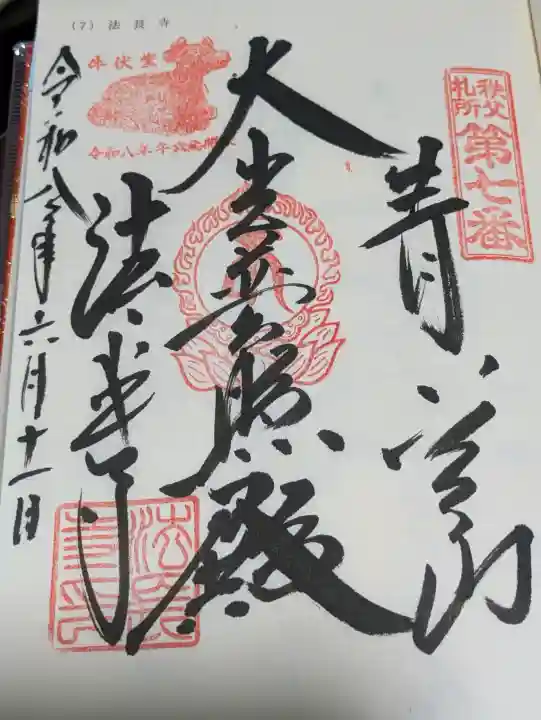 (7) 法長寺
秩父
札所
第七番
青苔山
大光普照殿
法長寺
令和八年六月十一日
牛伏堂
令和八年午歳